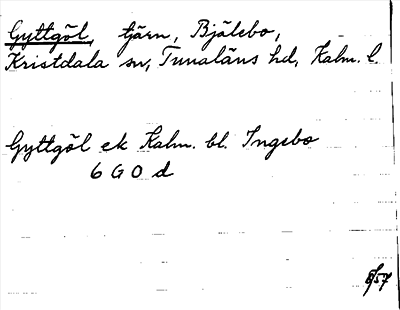 Gyttgöl, tjärn, Bjälebo,
Kristdala sn, Tunaläns hd, Kalm. l.
Gyttgöl ek Kalm. bl. Ingebo
6 G O d
8/57